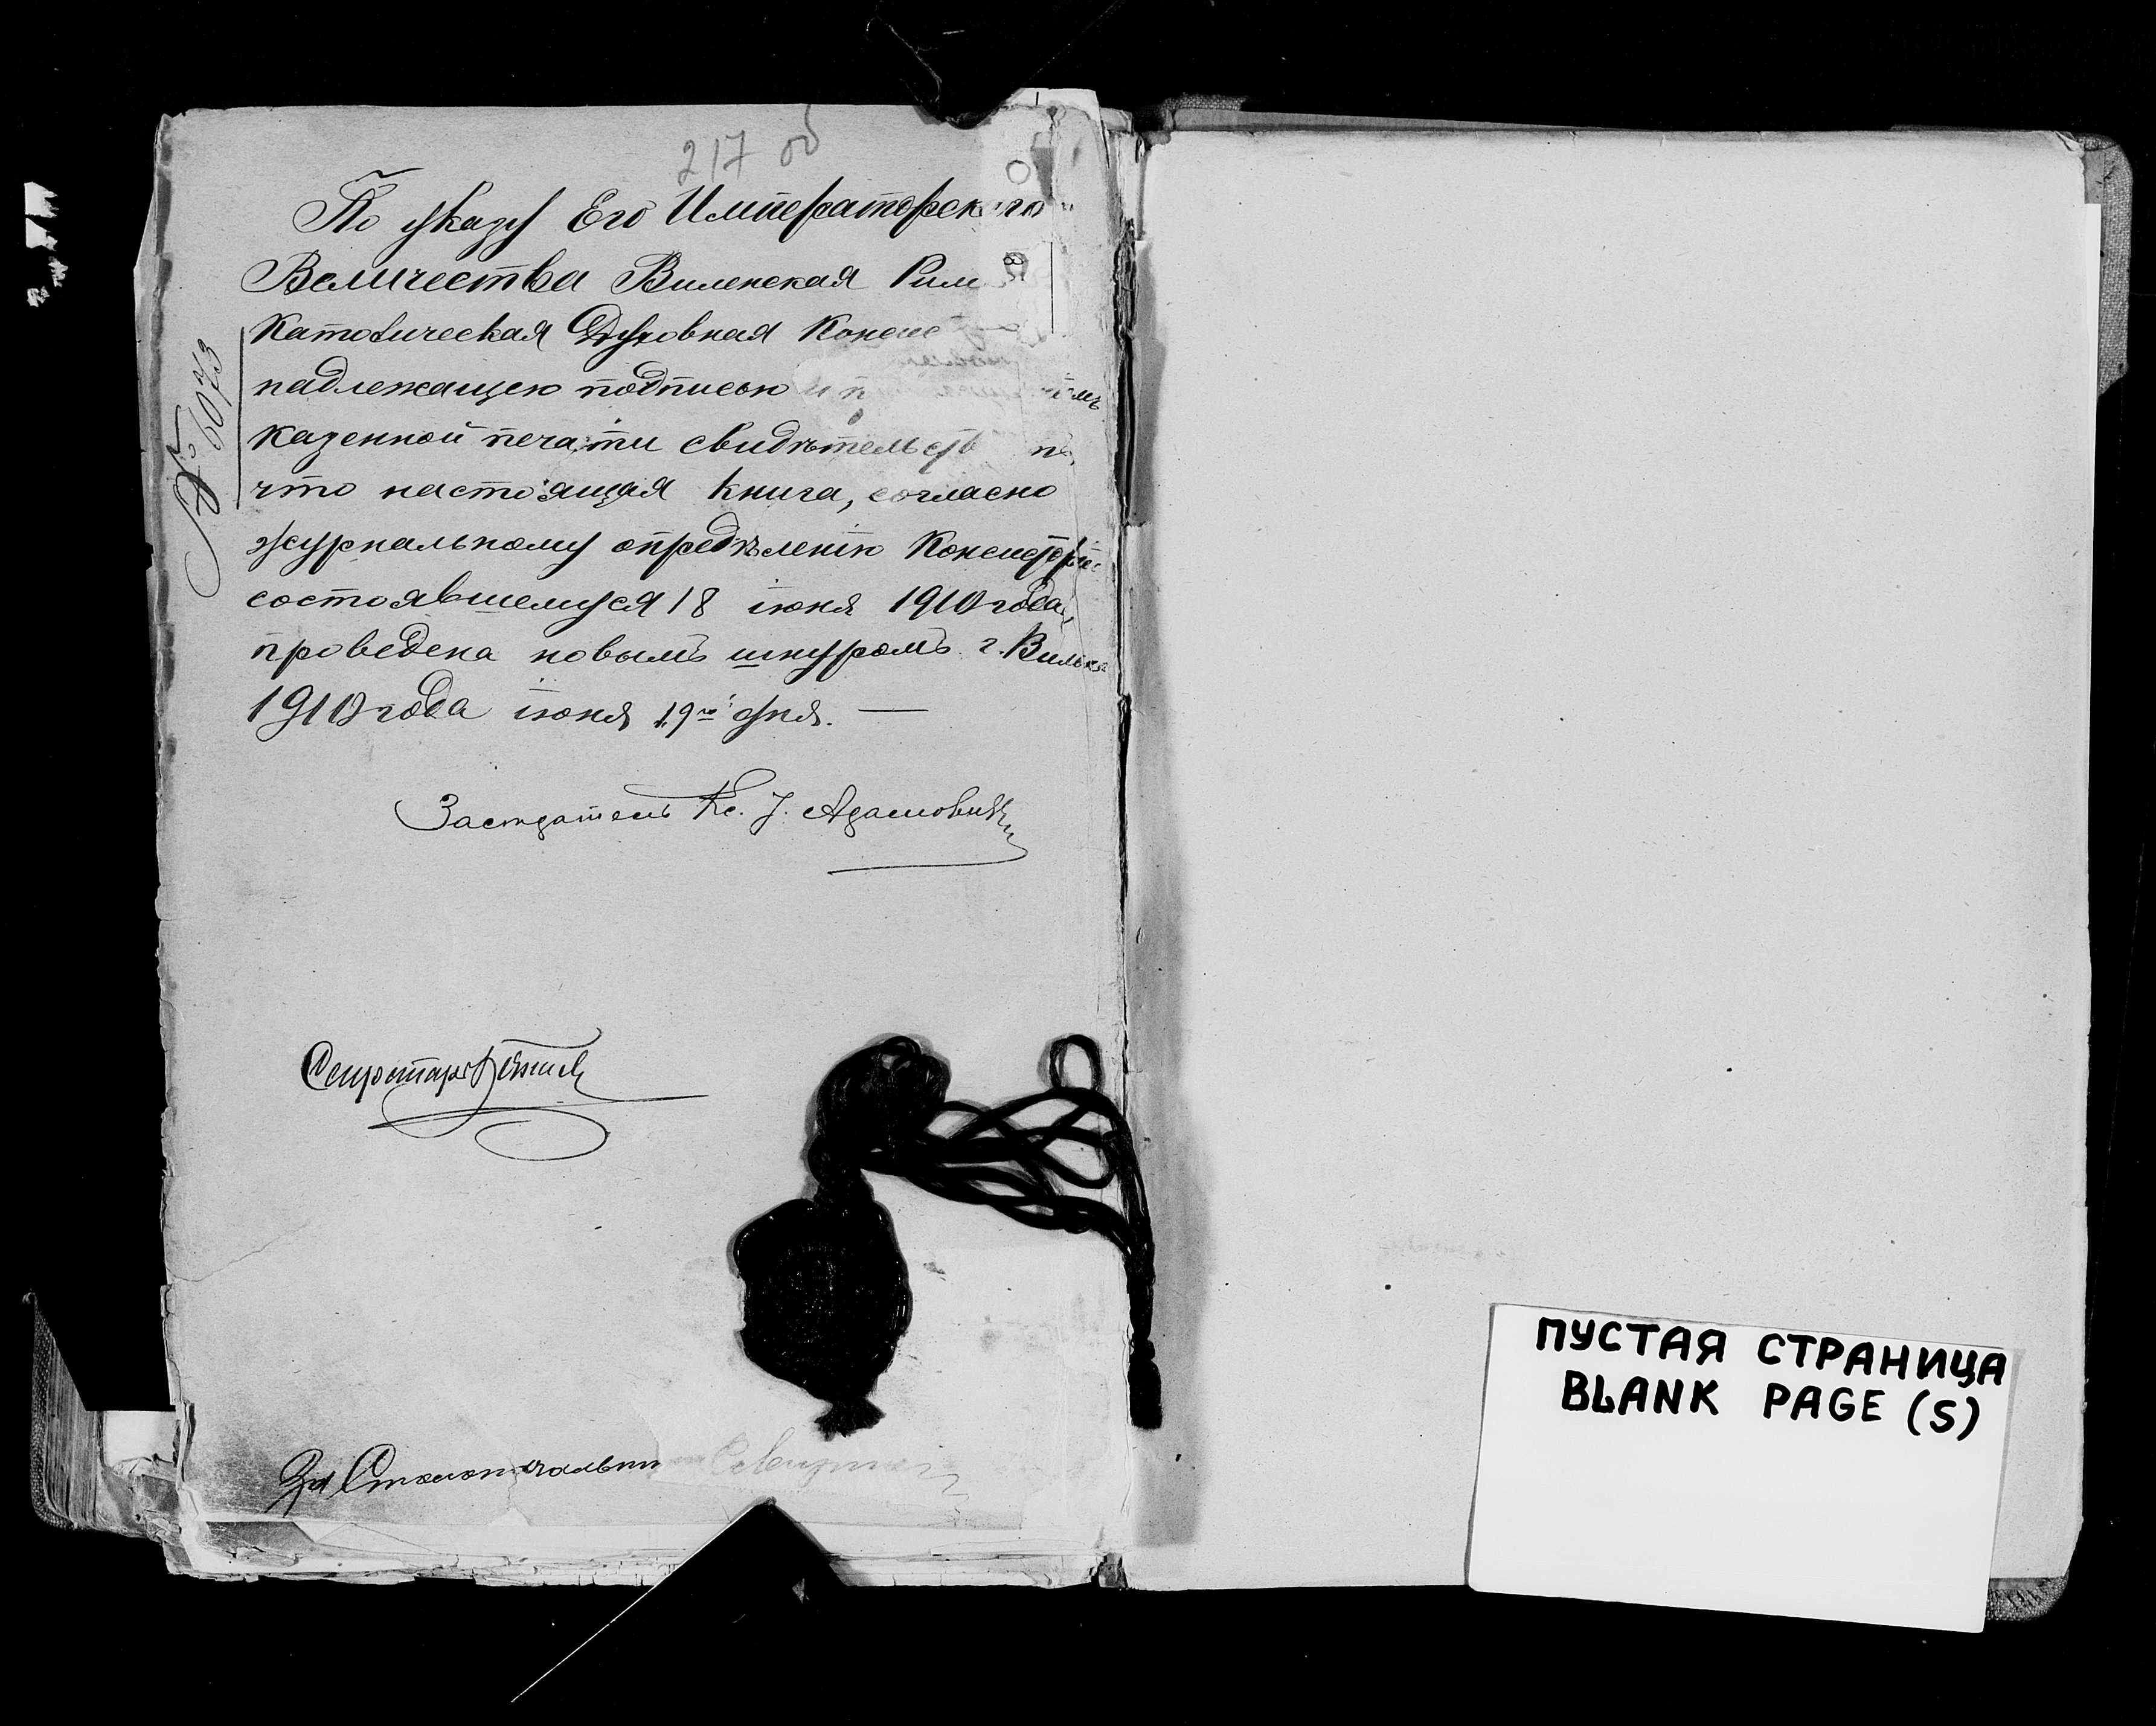 217 об
По указу Его Императорскаго
Величества Виленская Рим
Католическая Духовная Конси
надлежащею подписью и п
казенной печати свидѣтельств
что настоящая книга, согласно
журнальному опредѣленію Консисторіи
состоявшемуся 18 іюня 1910 года,
проведена новымъ шнуромъ г. Вильна
1910 года іюня 19го дня. —
№ 6073
Засѣдатель Кс. І. Адамовичъ
Секретарь
За Столоначальни
ПУСТАЯ СТРАНИЦА
BLANK PAGE (S)